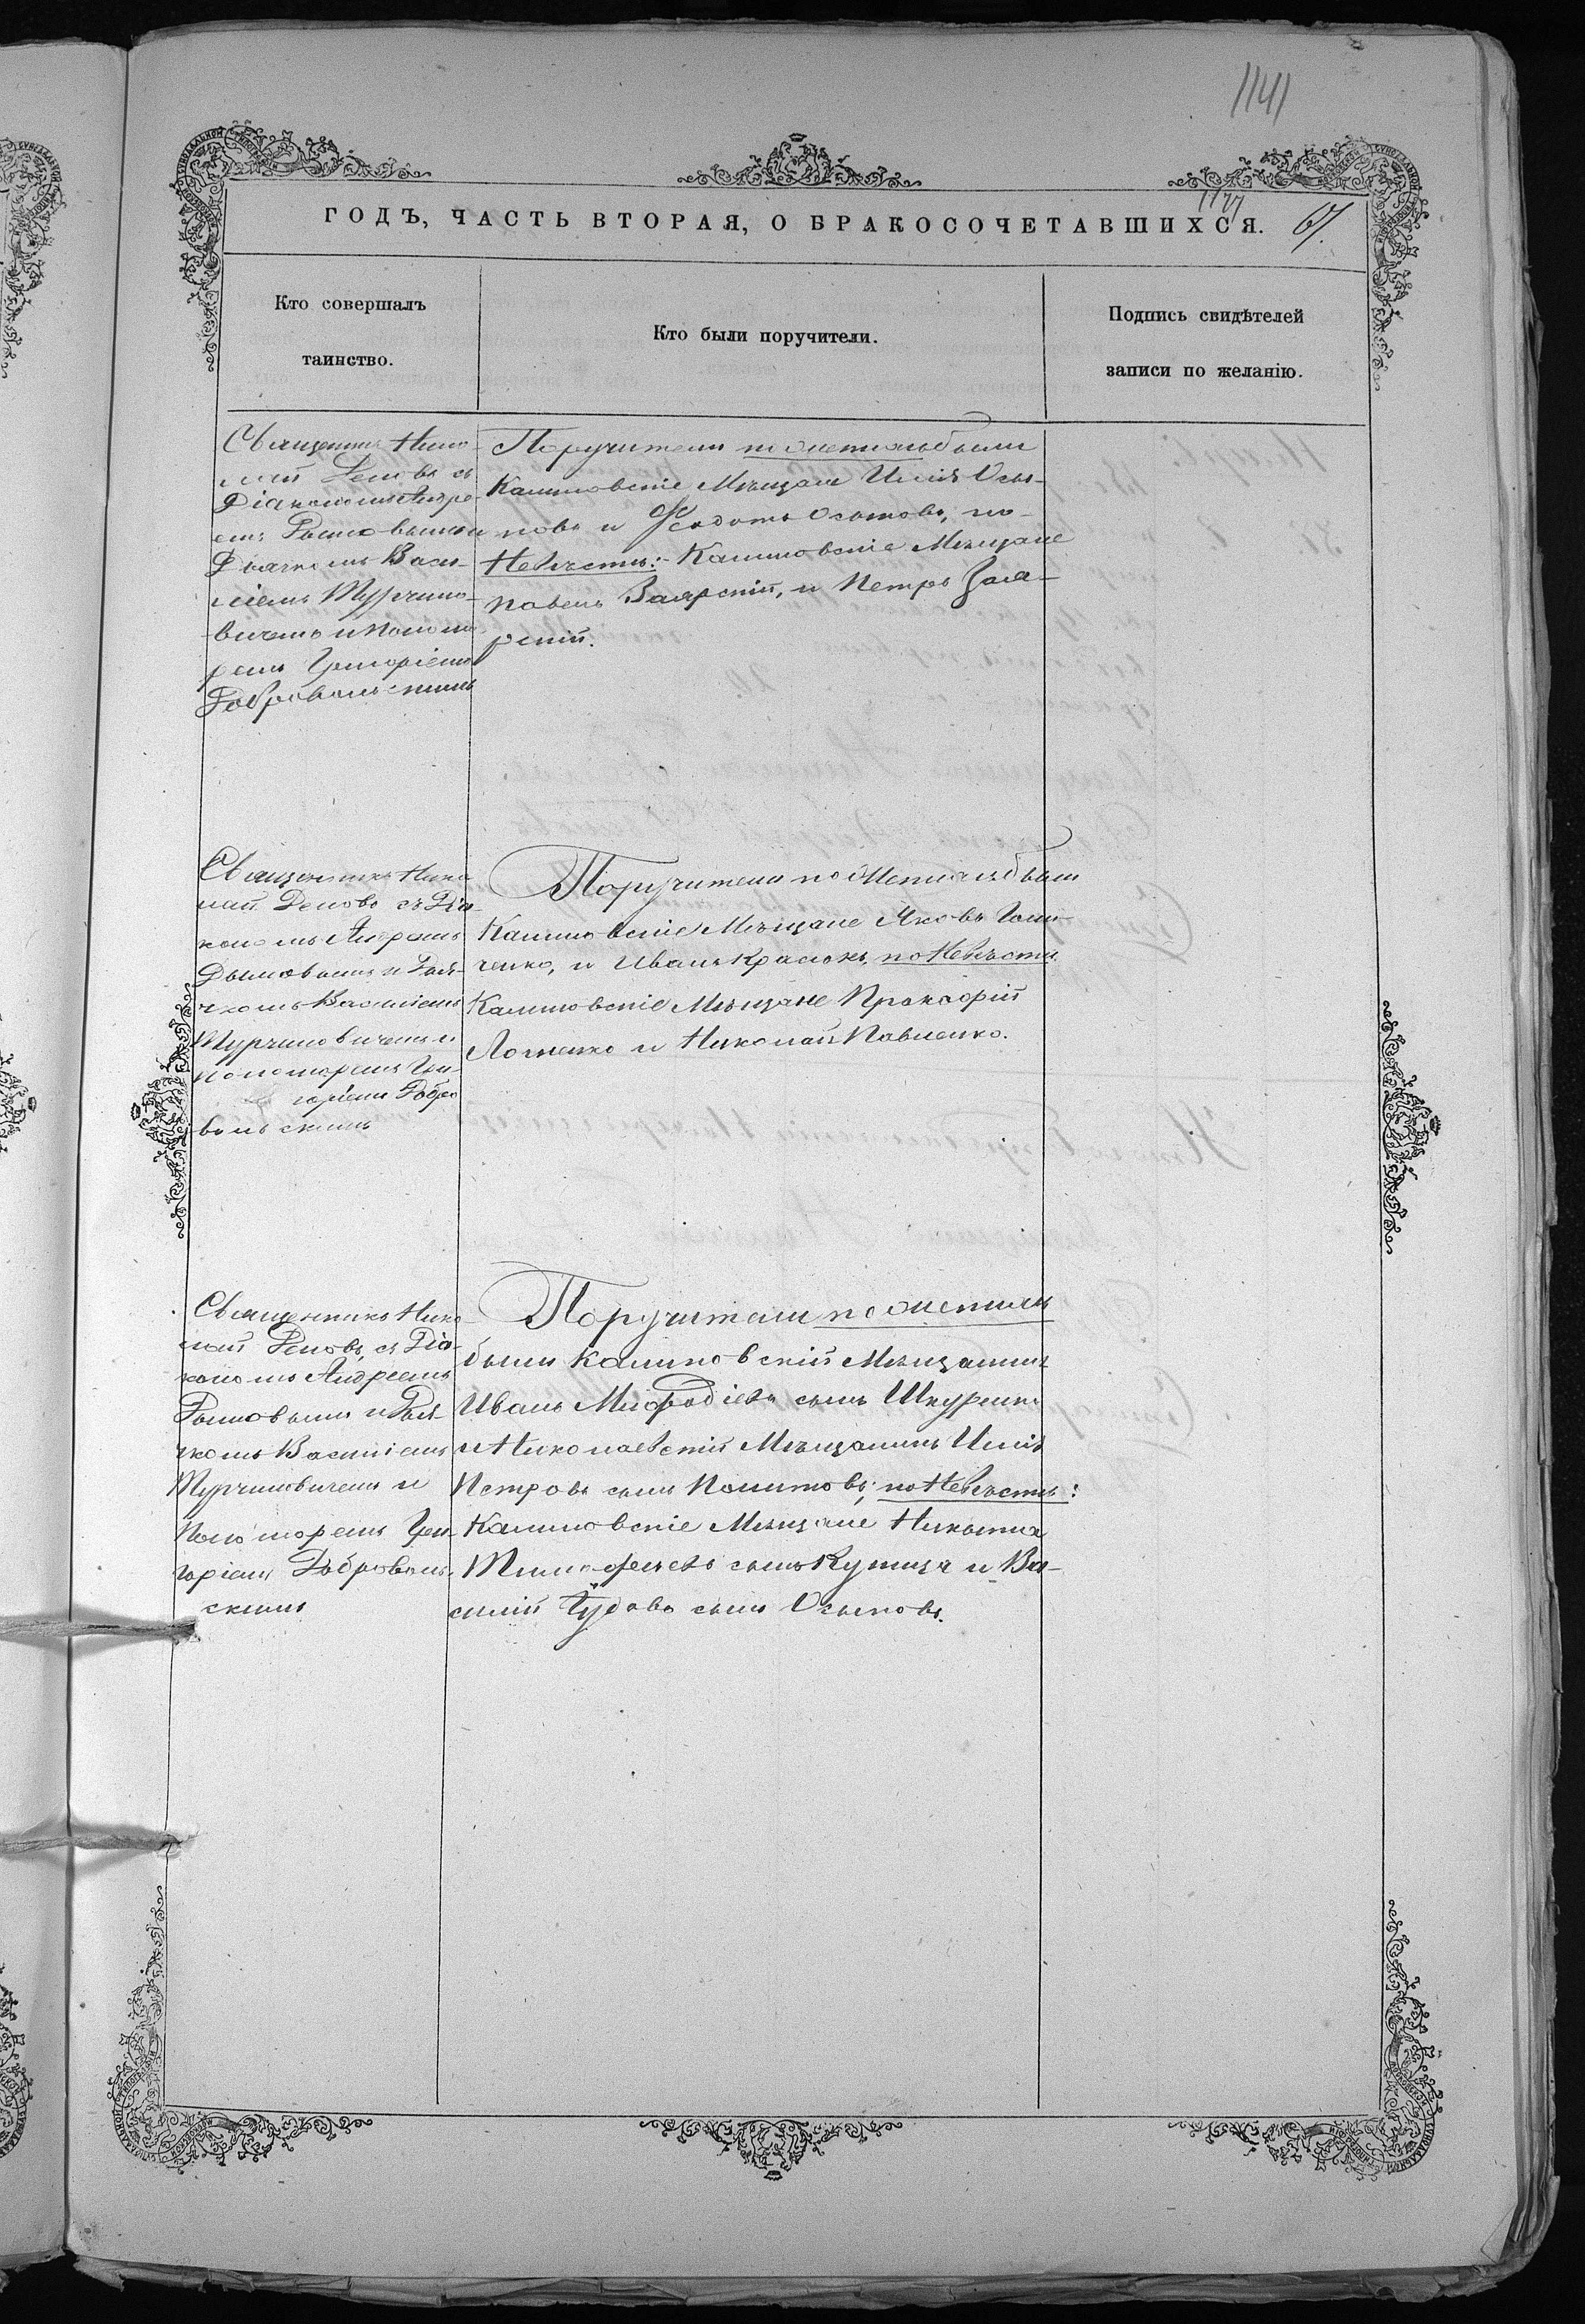 1141
1177
ГОДЪ, ЧАСТЬ ВТОРАЯ, О БРАКОСОЧЕТАВШИХСЯ. 67.
Кто совершалъ
таинство.
Кто были поручители.
Подпись свидѣтелей
записи по желанію.
Священникъ Нико-
лай съ
Діакономъ Андре-
емъ
Дьячкомъ Васи-
ліемъ Турчино-
вичемъ и Понома-
ремъ Григоріемъ
Добровольскимъ
Поручители по женихѣ были
Мѣщане Илія Оси-
повъ и Федотъ Осиповъ, по
Невѣстѣ: Мѣщане
Павелъ Заярскій, и Петръ Заяр-
скій.
Священникъ Нико-
лай съ Діа-
кономъ Андреемъ
и Дья-
чкомъ Василіемъ
Турчиновичемъ и
пономаремъ Гри-
горіемъ Добро-
вольскимъ
Поручители по Женихѣ были
Мѣщане Яковъ
и Иванъ по Невѣстѣ
Мѣщане Прокофій
и Николай Павленко.
Священникъ Нико-
лай съ Діа-
кономъ Андреемъ
и Дья-
чкомъ Василіемъ
Турчиновичемъ и
Пономаремъ Гри-
горіемъ Доброволь-
скимъ
Поручители по женихѣ
были Мѣщанинъ
Иванъ Мефодіевъ сынъ Шкуренко
и Николаевскій Мѣщанинъ Илія
Петровъ сынъ по Невѣстѣ:
Мѣщане Никита
Тимофеевъ сынъ Купица и Ва-
силій сынъ Осиповъ.